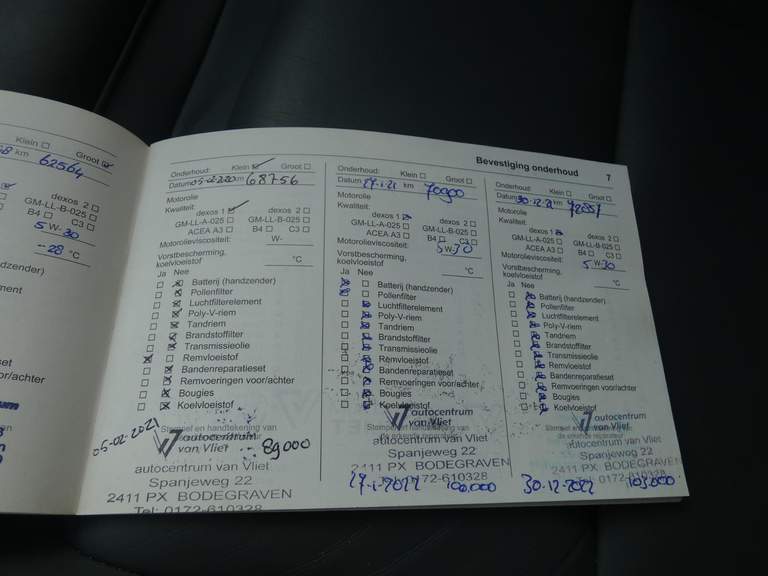 Klein Groot
km 62564
dexos 2
GM-LL-B-025
B4 C3
5 W-30
-28 °C
dzender)
ment
set
or/achter
Bevestiging onderhoud 7
Onderhoud: Klein Groot
Datum 05-02-2020 km 68756
Motorolie
Kwaliteit:
dexos 1 dexos 2
GM-LL-A-025 GM-LL-B-025
ACEA A3 B4 C3
Motorolieviscositeit: W-
Vorstbescherming,
koelvloeistof °C
Ja Nee
Batterij (handzender)
Pollenfilter
Luchtfilterelement
Poly-V-riem
Tandriem
Brandstoffilter
Transmissieolie
Remvloeistof
Bandenreparatieset
Remvoeringen voor/achter
Bougies
Koelvloeistof
Stempel en handtekening van
05-02-2021
autocentrum
van Vliet
89000
autocentrum van Vliet
Spanjeweg 22
2411 PX BODEGRAVEN
Tel: 0172-610328
Onderhoud: Klein Groot
Datum 27-1-21 km 70900
Motorolie
Kwaliteit:
dexos 1 dexos 2
GM-LL-A-025 GM-LL-B-025
ACEA A3 B4 C3
Motorolieviscositeit: 5 W-30
Vorstbescherming,
koelvloeistof °C
Ja Nee
Batterij (handzender)
Pollenfilter
Luchtfilterelement
Poly-V-riem
Tandriem
Brandstoffilter
Transmissieolie
Remvloeistof
Bandenreparatieset
Remvoeringen voor/achter
Bougies
Koelvloeistof
autocentrum
van Vliet
Stempel en handtekening van
de erkende reparateur
autocentrum van Vliet
Spanjeweg 22
2411 PX BODEGRAVEN
0172-610328
27-1-2022 100.000
Onderhoud: Klein Groot
Datum 30-12-21 km
Motorolie
Kwaliteit:
dexos 1 dexos 2
GM-LL-A-025 GM-LL-B-025
ACEA A3 B4 C3
Motorolieviscositeit: 5 W-30
Vorstbescherming,
koelvloeistof °C
Ja Nee
Batterij (handzender)
Pollenfilter
Luchtfilterelement
Poly-V-riem
Tandriem
Brandstoffilter
Transmissieolie
Remvloeistof
Bandenreparatieset
Remvoeringen voor/achter
Bougies
Koelvloeistof
autocentrum
van Vliet
Stempel en handtekening van
de erkende reparateur
autocentrum van Vliet
Spanjeweg 22
2411 PX BODEGRAVEN
Tel: 0172-610328
30-12-2022 103.000